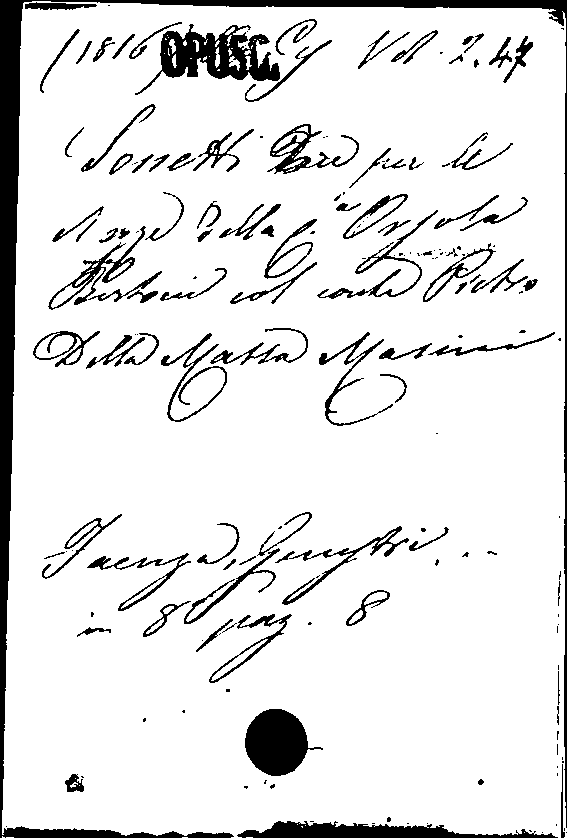 (1816) OPUSC. Cy Vol. 2. 47
Sonetti Tre per le
Nozze della C.a Orsola
Bertoni col conte Pietro
Della Massa Masini
Faenza, Genestri ...
in 8° pag. 8